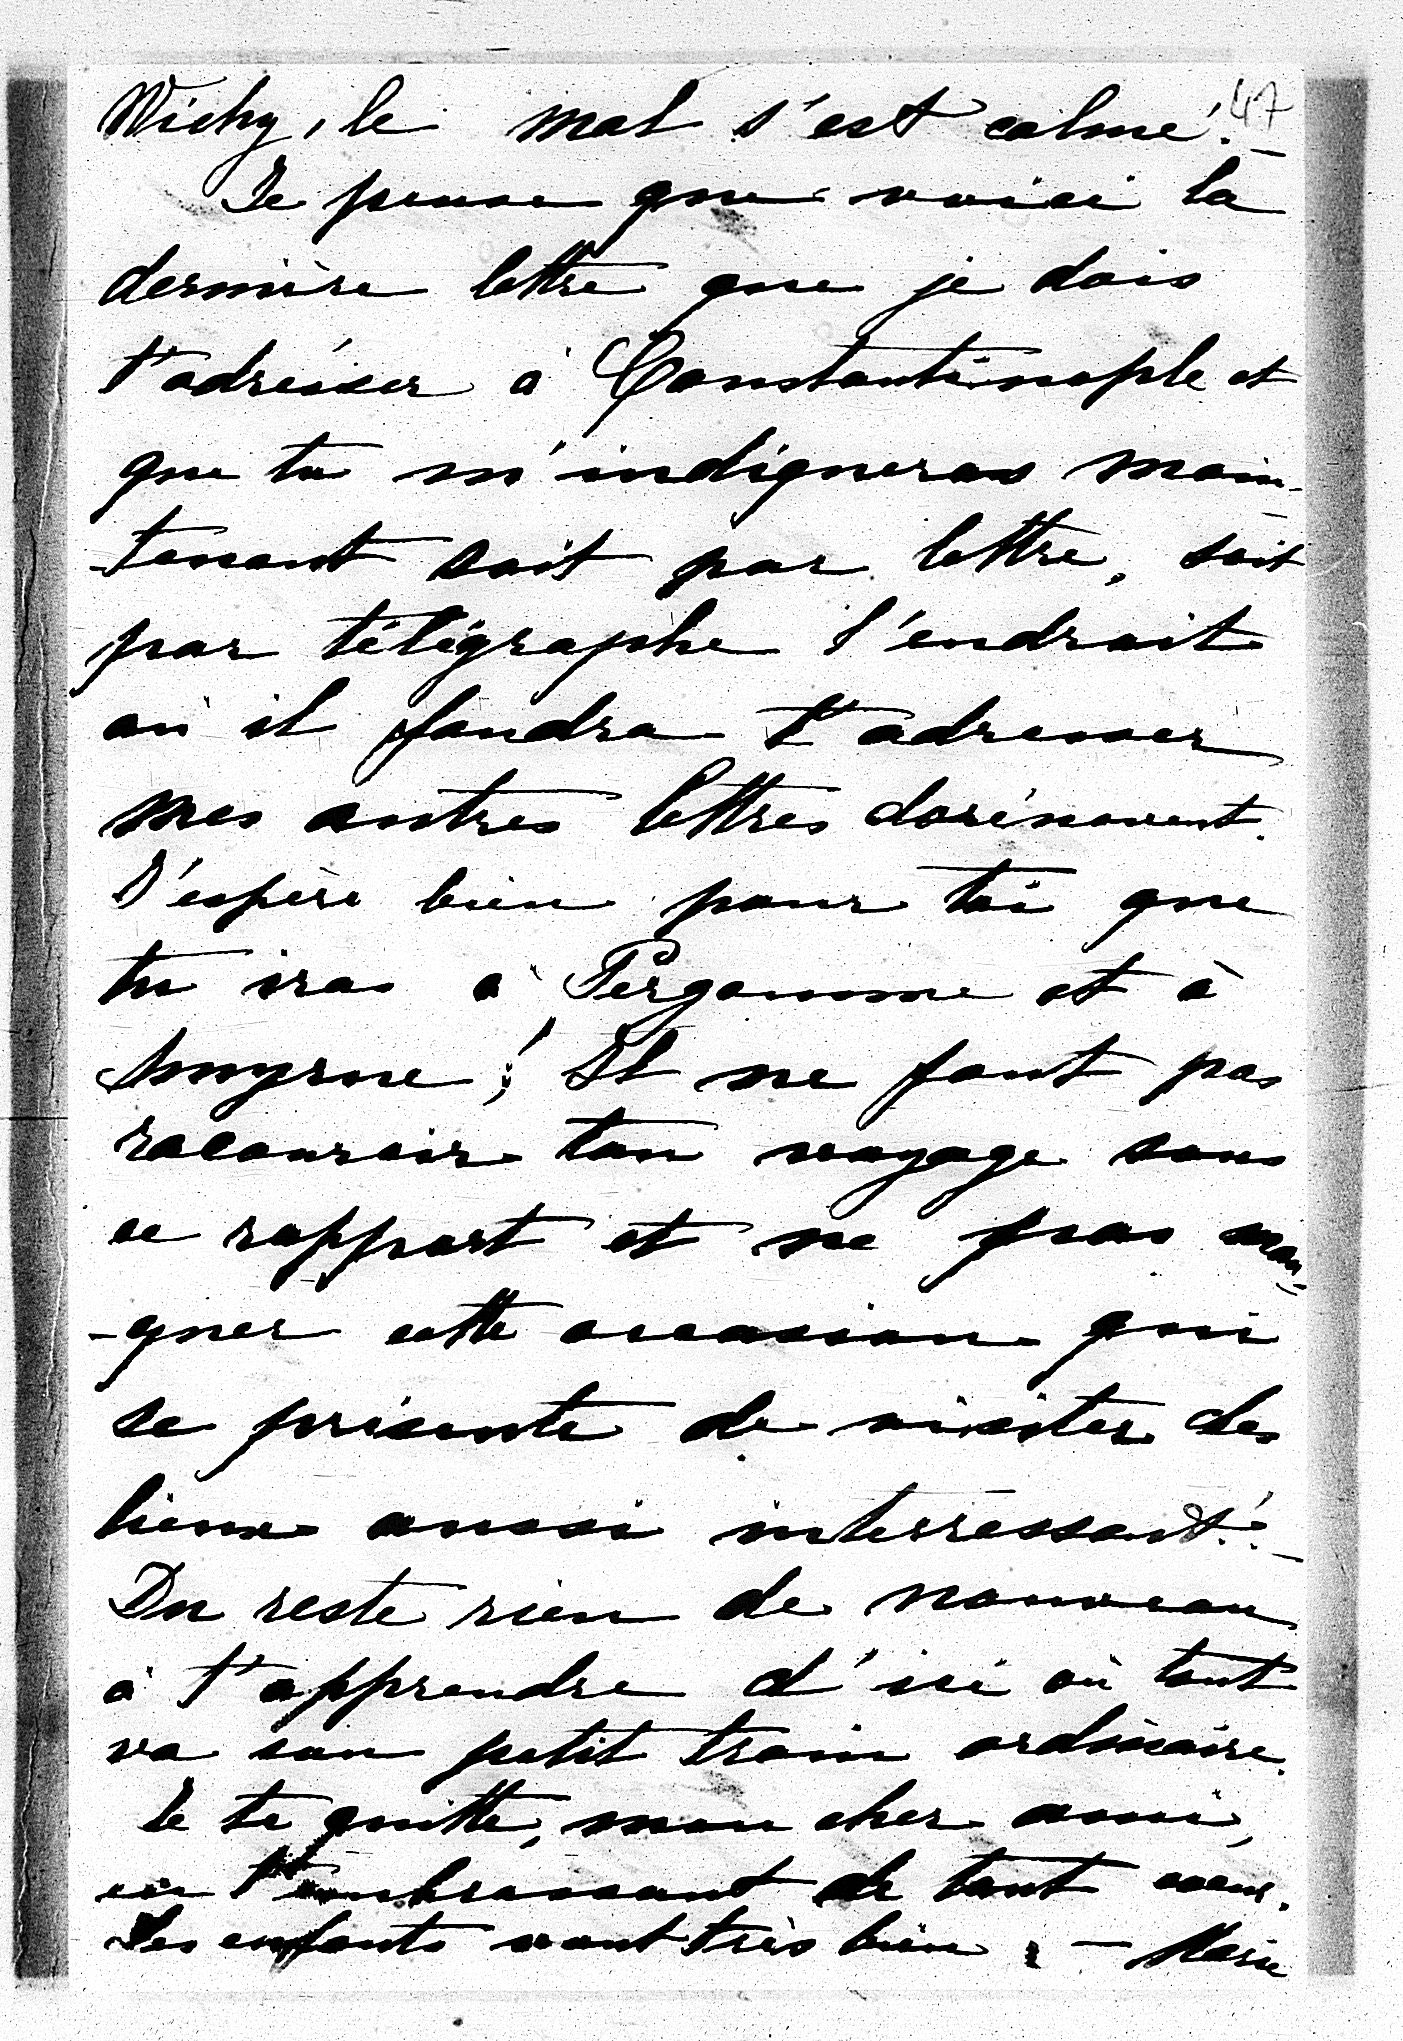 47
Vichy, le mal s'est calmé! _
Je pense que voici la
dernière lettre que je dois
t'adrésser à Constantinople et
que tu m'indigneras main-
-tenant soit par lettre, soit
par télégraphe l'endroit
où il faudra t'adresser
mes autres lettres dorénavent.
J'espère bien pour toi que
tu iras à Pergamme et à
Smyrne! Il ne faut pas
racourcir ton voyage sous
ce rapport et ne pas man-
-quer cette occasion qui
se présente de visiter des
lieux aussi interressant! _
Du reste rien de nouveau
à t'apprendre d'ici où tout
va son petit train ordinaire.
Je te quitte, mon cher ami,
en t'embrassant de tout coeur.
Les enfants vont très bien. — Marie